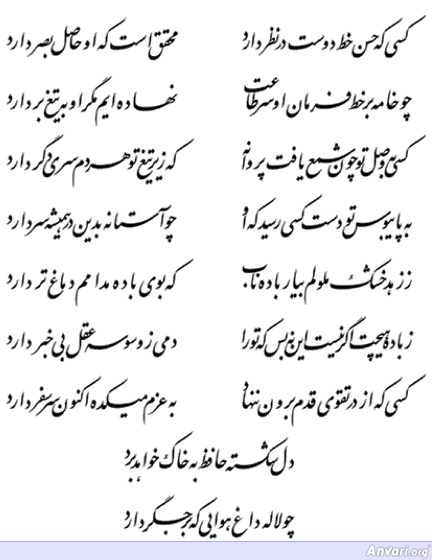 کسی که حسن خط دوست در نظر دارد محقق است که او حاصل بصر دارد
چو خامه بر خط فرمان او سر طاعت نهاده ایم مگر او به تیغ بر دارد
کسی به وصل تو چون شمع یافت پروانه که زیر تیغ تو هر دم سری دگر دارد
به پایبوس تو دست کسی رسید که او چو آستانه بدین در همیشه سر دارد
ز زهد خشک ملولم بیار باده ناب که بوی باده مدامم دماغ تر دارد
ز باده هیچت اگر نیست این نه بس که تو را دمی ز وسوسه عقل بی خبر دارد
کسی که از در تقوی قدم برون ننهاد به عزم میکده اکنون سر سفر دارد
دل شکسته حافظ به خاک خواهد برد
چو لاله داغ هوایی که بر جگر دارد
Anvari.org